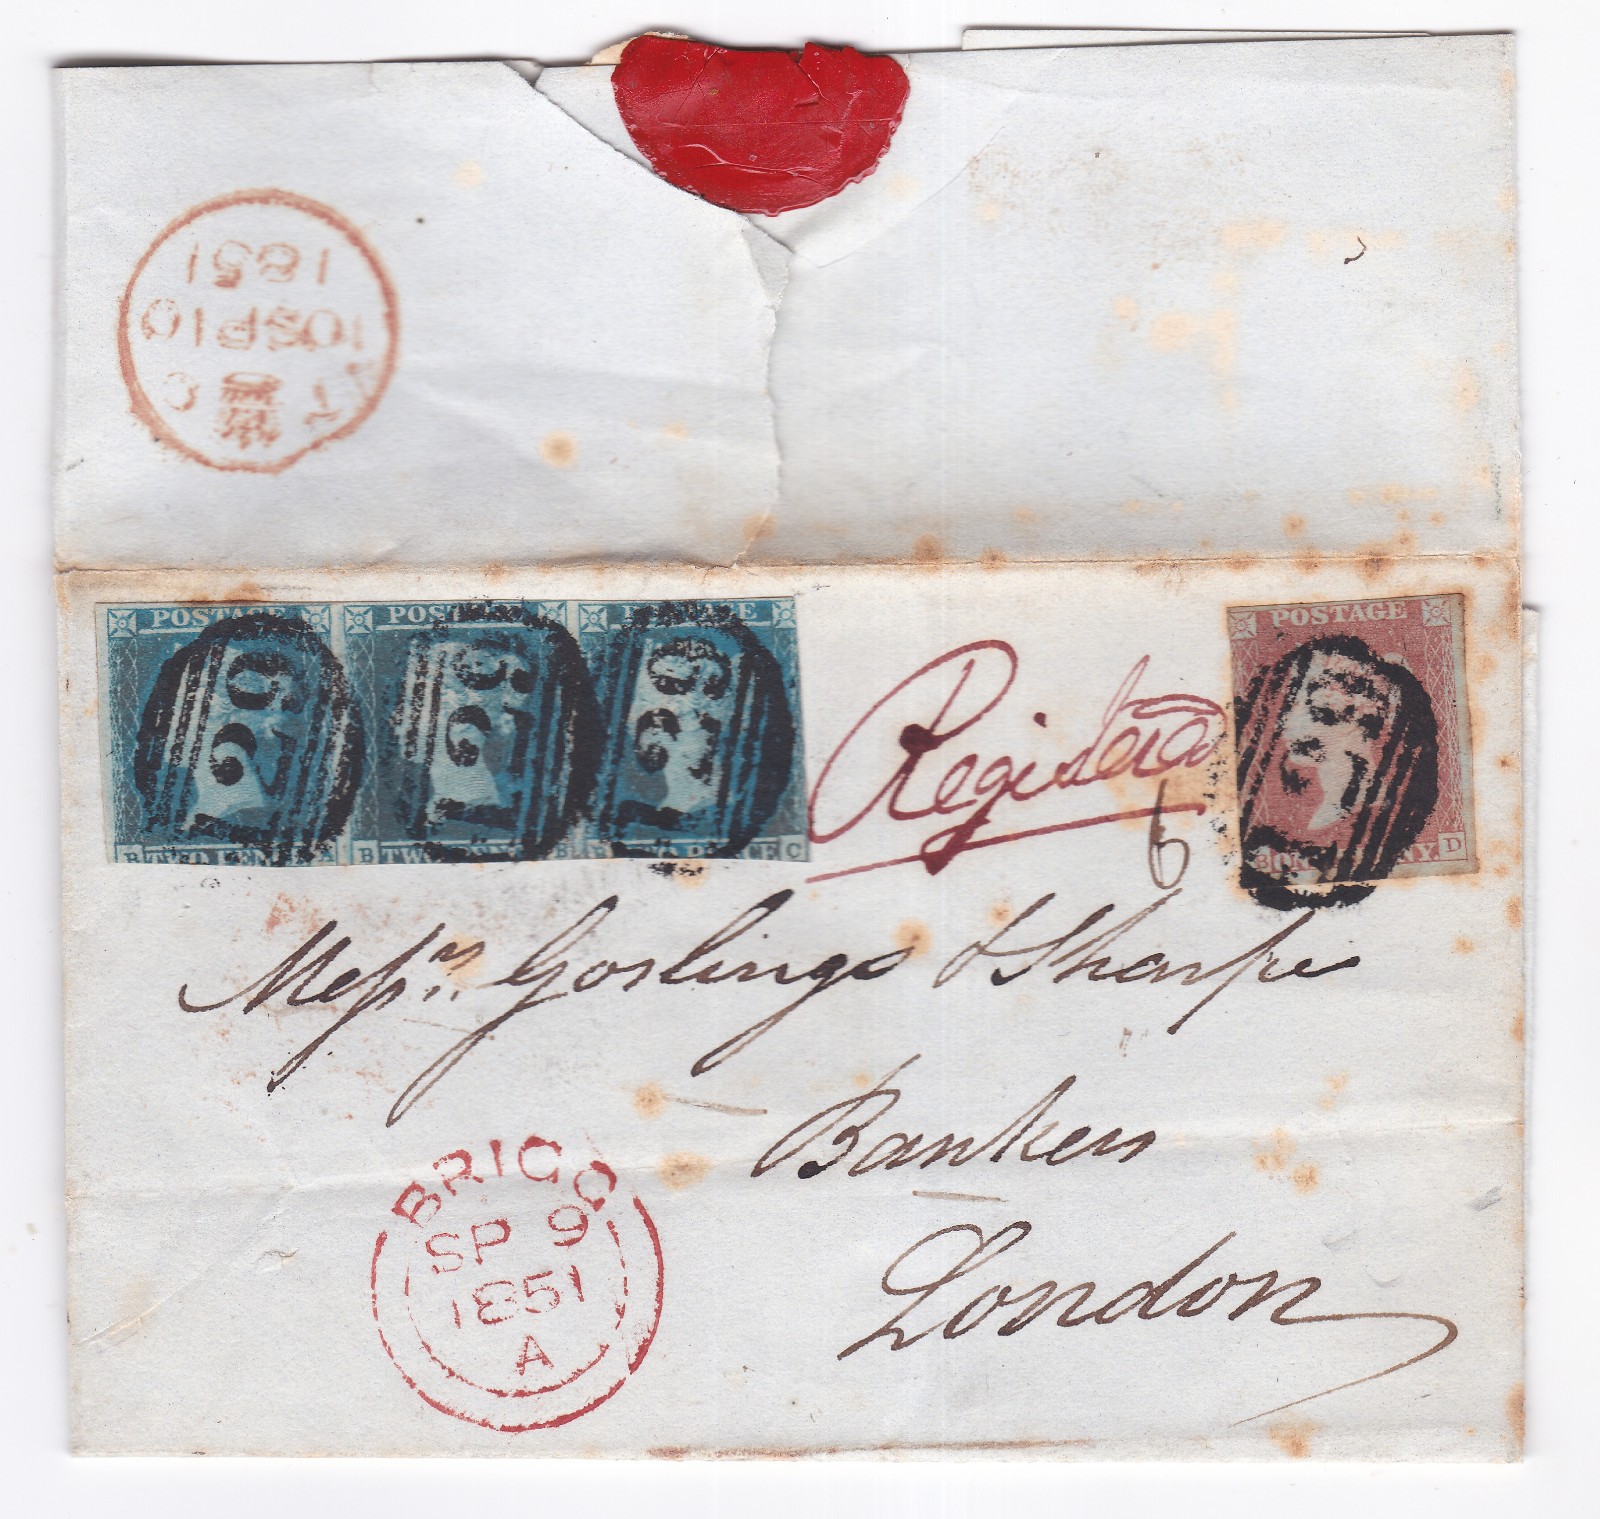 1851
10SP10
POSTAGE POSTAGE POSTAGE
129 129 129
B TWO PENCE A B TWO PENCE B B TWO PENCE C
Registered
6
POSTAGE
129
B ONE PENNY. D
Messrs. Goslings & Sharpe
Bankers
London
BRIGG
SP 9
1851
A